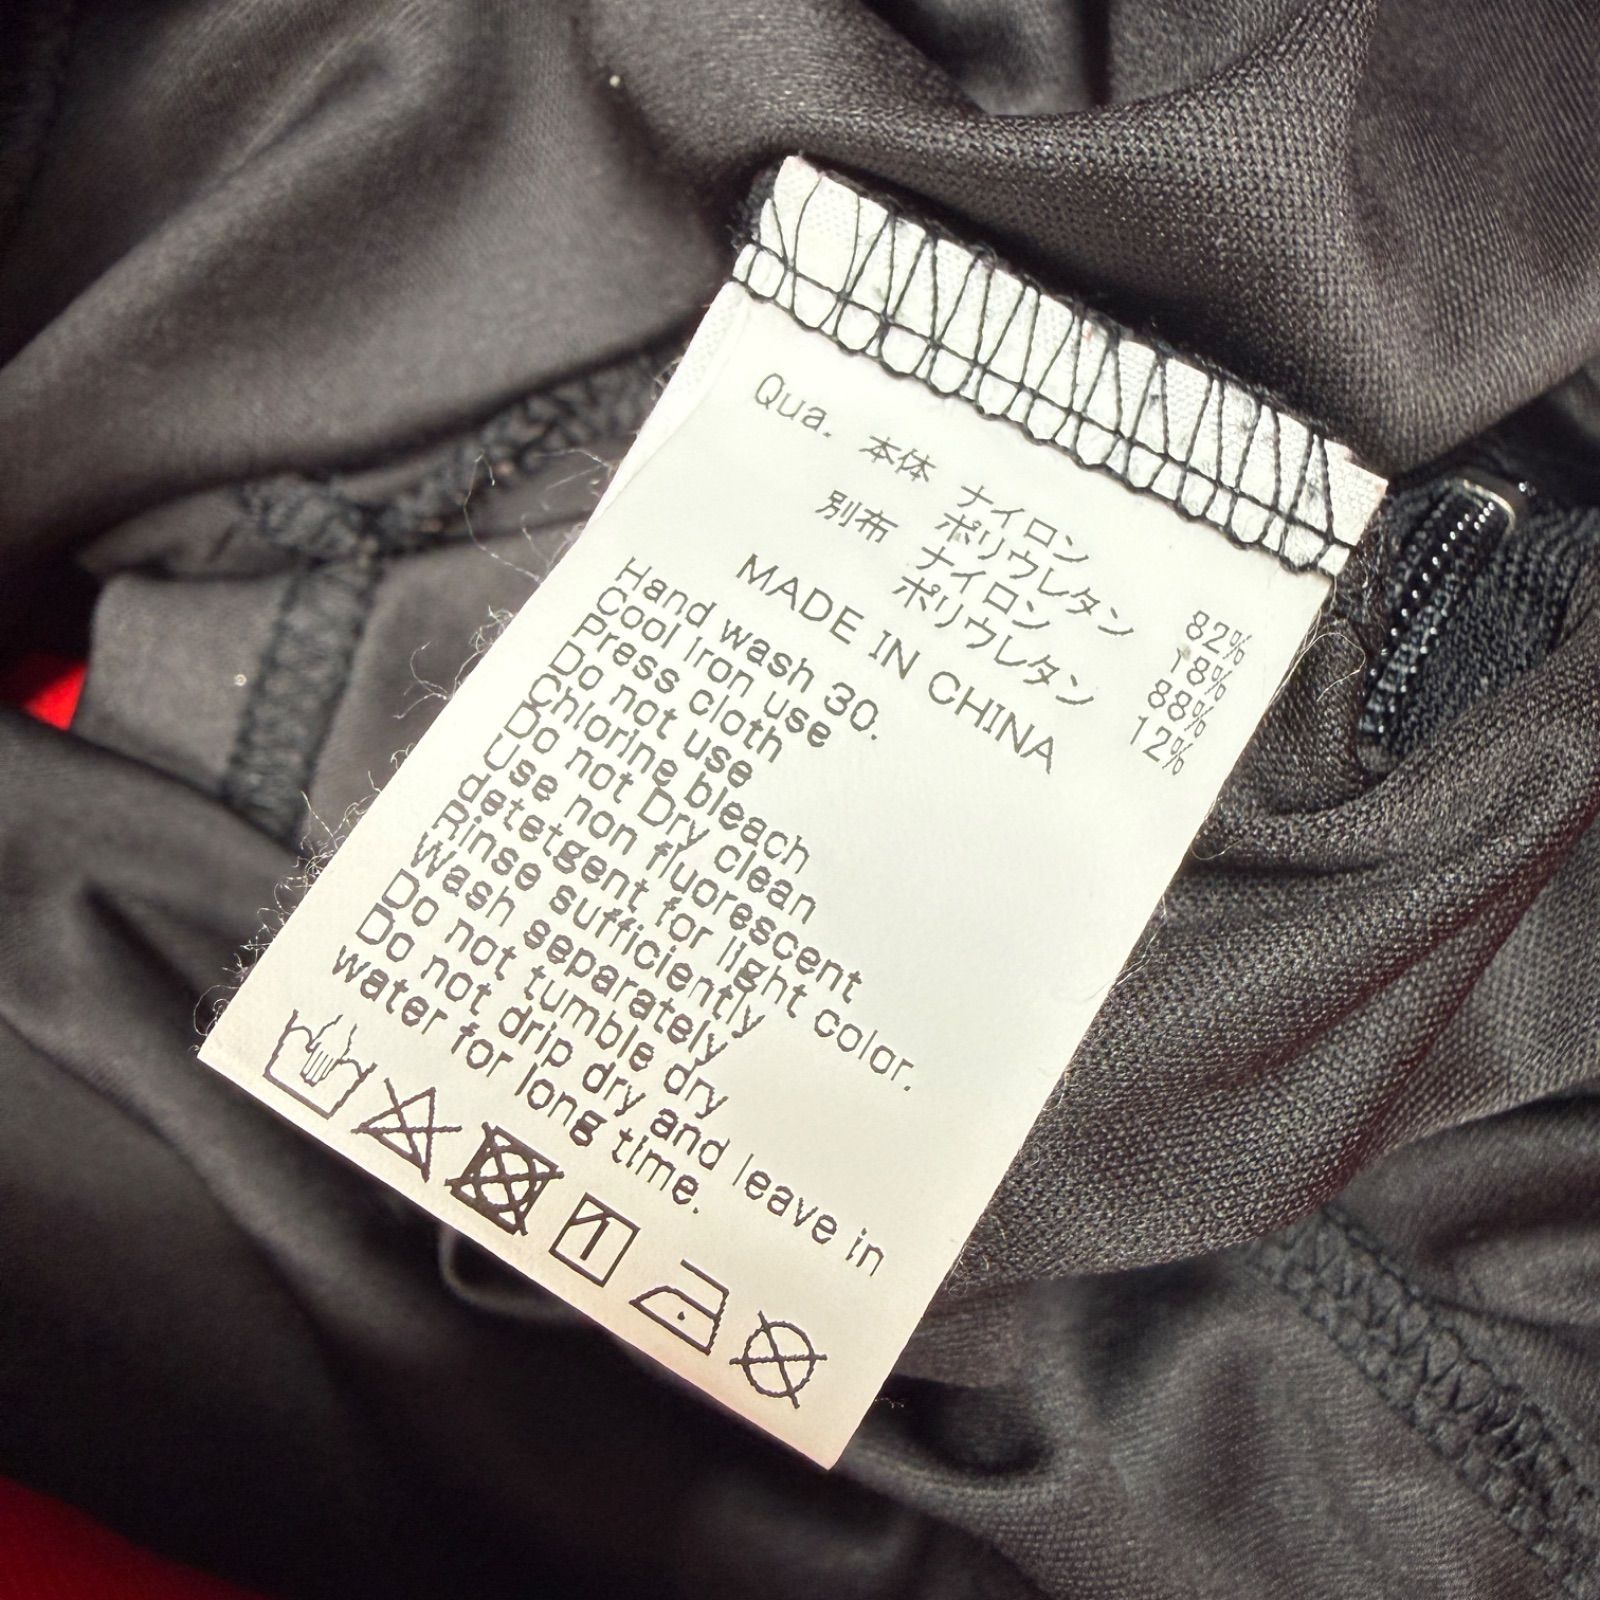 Qua. 本体 ナイロン 82%
ポリウレタン 18%
別布 ナイロン 88%
ポリウレタン 12%
MADE IN CHINA
Hand wash 30.
Cool iron use
Press cloth
Do not use
Chlorine bleach
Do not Dry clean
Use non fluorescent
detetgent for light color.
Rinse sufficiently
Wash separately
Do not tumble dry
Do not drip dry and leave in
water for long time.